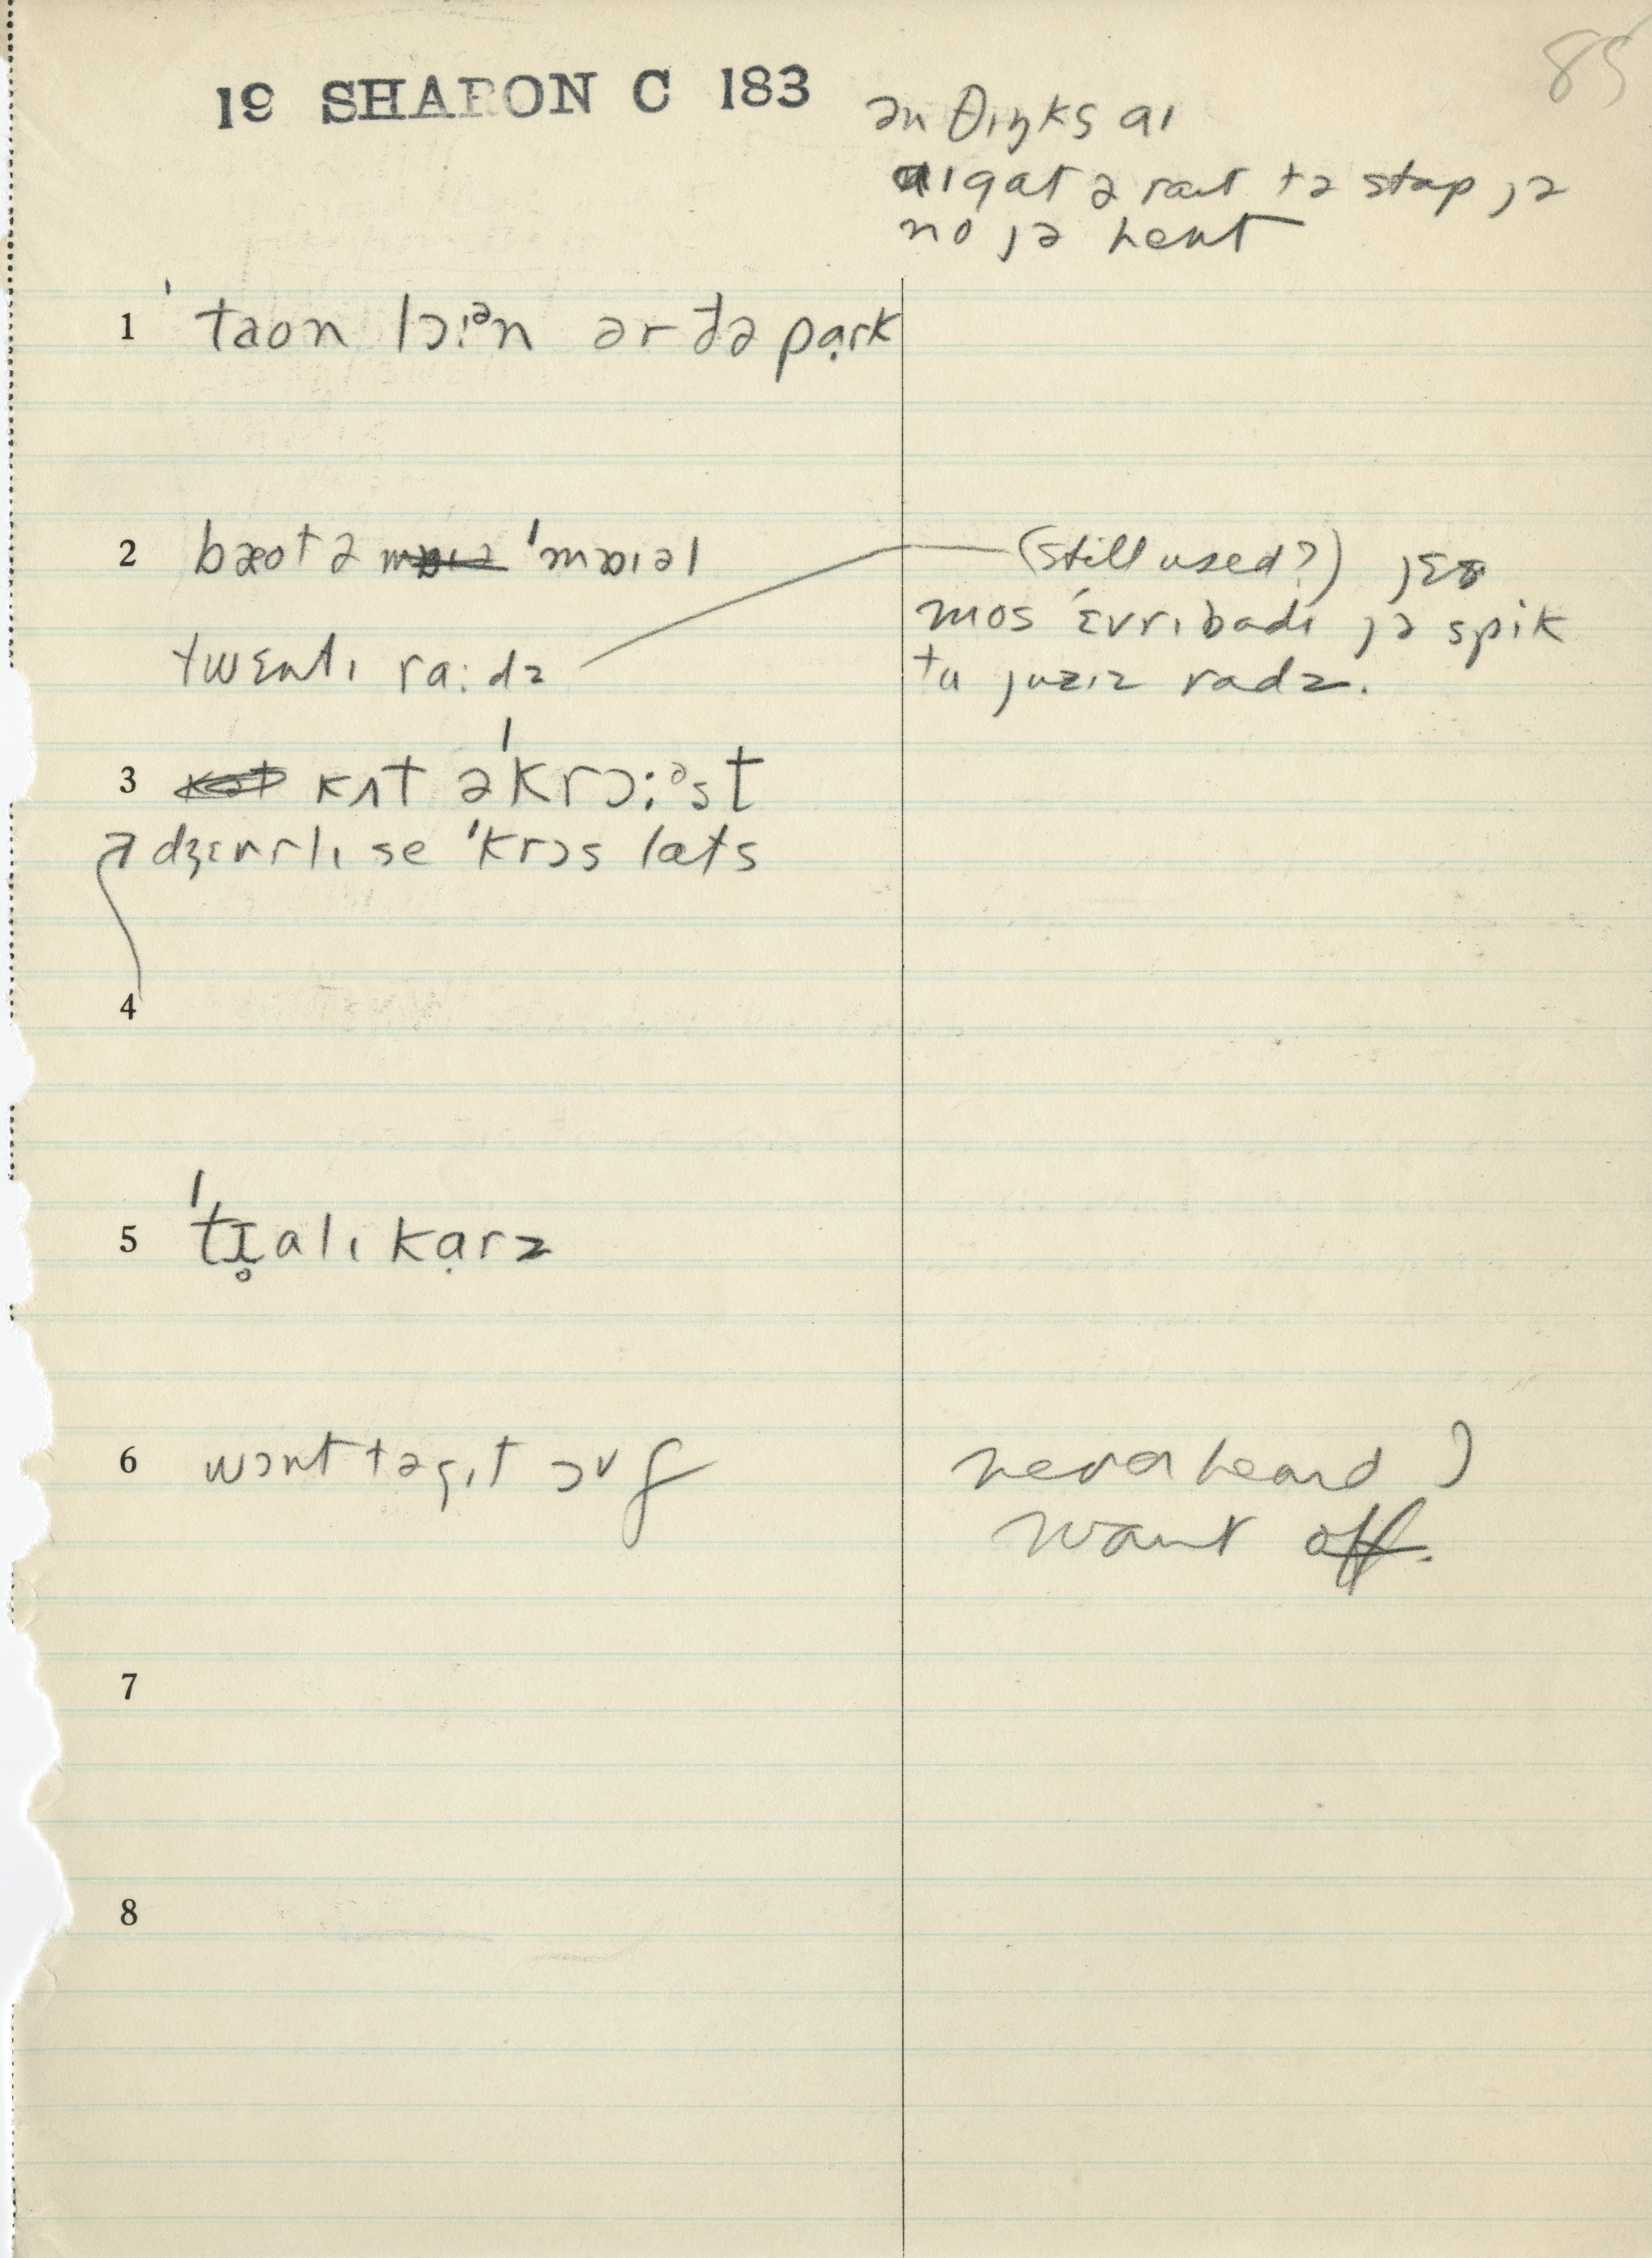 19 SHARON C 183
85
ən θɪŋks aɪ
aɪ gat ə raɪt tə stap jə
no jə hent
1 ˈtaon lɔ:ᵊn ər ðə pạrk
2 bæotə ˈmɒɪəl
(still used?) jɛs
mos ˈɛvrɪbadɪ jə spik
twɛntɪ ra:dz
tu juzɪz radz.
3 kʌt əˈkrɔ:ᵊst
dʒɛnrlɪ se ˈkrɔs lats
4
5 ˈtɪ̥alɪ kạrz
6 wɔnt tə gɪt ɔvf
never heard
want off.
7
8